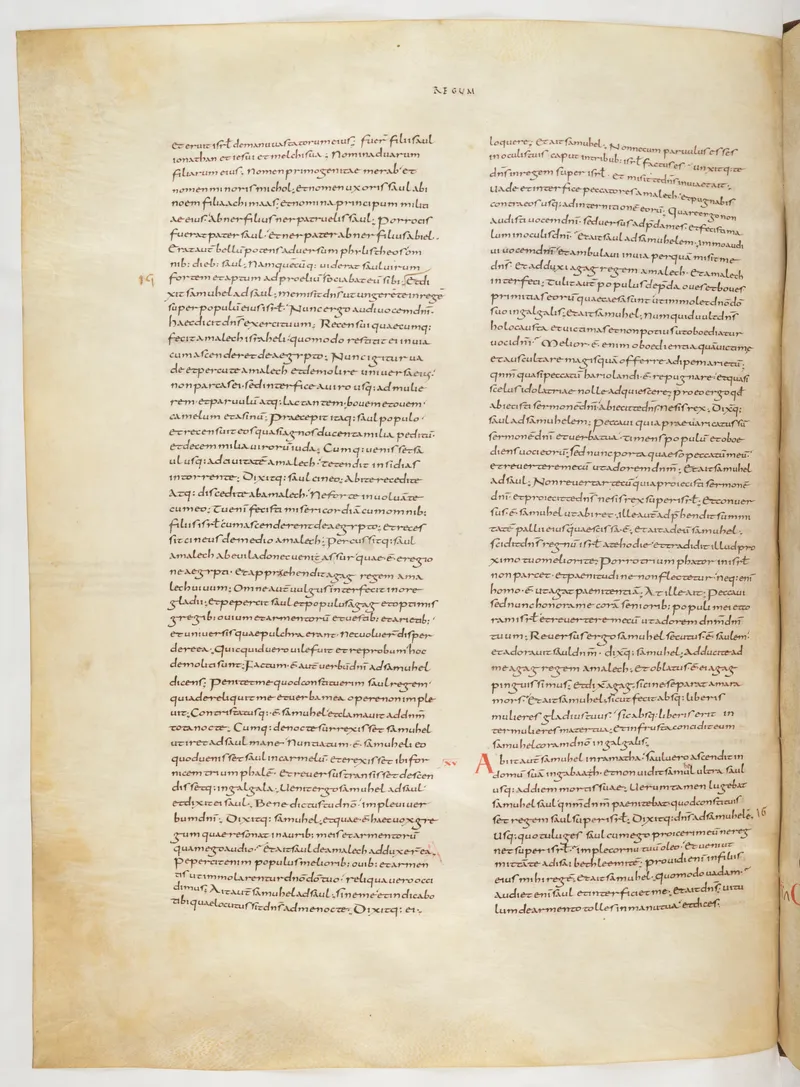 REGUM
Et eruit isrł demanu uastatorum eius; Fuer̄ filii saul
ionathan et iesui et melchisua; Nomina duarum
filiarum eius, Nomen primogenitae merab et
nomen minoris michol; et nomen uxoris saul abi
noem filia achimaas; et nomina principum mili
ae eius abner filius ner patruelis saul; Porro cis
fuerat pater saul et ner pater abner filius abiel.
Erat aut̄ bellū potens aduersum phylistheos om
nib: dieb: saul; Nam quēcūq: uiderat saul uirum
19
fortem et aptum ad proeliū sociabat eū sibi; Et di
xit samuhel ad saul; me misit dn̄s ut ungerē te in regē
super populū eius isrł; Nunc ergo audi uocem dn̄i.
haec dicit dn̄s exercituum; Recensui quaecumq:
fecit amalech israheli quomodo restitit ei in uia
cum ascenderet de aegypto; Nunc igitur ua
de et percute amalech et demolire uniuersa eius;
non parcas ei sed interfice a uiro usq: ad mulie
rem et paruulū atq: lactantem, bouem et ouem
camelum et asinū; Praecepit itaq: saul populo
et recensuit eos quasi agnos ducenta milia peditū
et decem milia uirorū iuda; Cumq: uenisset sa
ul usq: ad ciuitatē amalech tetendit insidias
in torrente; Dixitq: saul cineo; Abite recedite
atq: discedite ab amalech; Ne forte inuoluā te
cum eo; Tu enī fecisti misericordiā cum omnib:
filiis isrł cum ascenderent de aegypto; Et reces
sit cineus de medio amalech; Percussitq: saul
amalech ab euila donec uenias assur quae ē e regio
ne aegypti. Et apprehendit agag regem ama
lech uiuum; Omne aut̄ uulgus interfecit in ore
gladii, et pepercit saul et populus agag et optimis
gregib: ouium et armentorū et uestib; et arietib;
et uniuersis quae pulchra erant nec uoluer̄ disper
dere ea, Quicquid uero uile fuit et reprobum hoc
demoliti sunt; Factum ē aut̄ uerbū dn̄i ad samuhel
dicens; Penitet me quod constituerim saul regem
quia dereliquit me et uerba mea opere non imple
uit; Contristatusq: ē samuhel et clamauit ad dnm̄
tota nocte; Cumq: de nocte surrexisset samuhel
ut iret ad saul mane Nuntiatum ē samuheli eo
quod uenisset saul in carmelū et erexisset ibi for
nicem triumphalē. Et reuersus transisset descen
dissetq: in galgala; Uenit ergo samuhel ad saul
et dixit ei saul. Benedictus tu dn̄o impleui uer
bum dn̄i; Dixitq: samuhel; et quae ē haec uox gre
gum quae resonat in aurib: meis et armentorū
quam ego audio; Et ait saul de amalech adduxer̄ ea;
Pepercit enim populus meliorib: ouib: et armen
tis ut immolarentur dn̄o dō tuo reliqua uero occi
dimus; Ait aut̄ samuhel ad saul, sine me et indicabo
tibi quae locutus sit dn̄s ad me nocte; Dixitq: ei.
loquere; Et ait samuhel, Nonne cum paruulus esses
in oculis tuis caput in tribub: isrł factus es unxitq: te
dn̄s in regem super isrł. Et misit te dn̄s in uia et ait:
Uade et interfice peccatores amalech, et pugnabis
contra eos usq: ad internitionē eorū. Quare ergo non
audisti uocem dn̄i, sed uersus ad p̄dam es, et fecisti ma
lum in oculis dn̄i; Et ait saul ad samuhelem, immo audi
ui uocem dn̄i, et ambulaui in uia per quā misit me
dn̄s. Et adduxi agag regem amalech, et amalech
interfeci; Tulit aut̄ populus de p̄da oues et boues
primitias eorū quae caesa sunt ut immolet dn̄o dō
suo in galgalis; Et ait samuhel, Numquid uult dn̄s
holocausta et uictimas et non potius ut oboediatur
uoci dn̄i; Melior ē enim oboedientia quā uictime
et auscultare magis quā offerre adipem arietū;
qm̄n quasi peccatū hariolandi ē repugnare et quasi
scelus idolatriae nolle adquiescere; pro eo ergo qd̄
abiecisti sermonē dn̄i, abiecit te dn̄s ne sis rex, Dixitq:
saul ad samuhelem; Peccaui quia praeuaricatus sū
sermonē dn̄i et uerba tua timens populū et oboe
diens uoci eorū, sed nunc porta quaeso peccatū meū
et reuertere mecū ut adorem dnm̄; Et ait samuhel
ad saul; Non reuertar tecū quia proiecisti sermonē
dn̄i et proiecit te dn̄s ne sis rex super isrł; Et conuer
sus ē samuhel ut abiret ille aut̄ adp̄hendit summi
tatē pallii eius quae scissa ē, et ait ad eū samuhel.
scidit dn̄s regnū isrł a te hodie et tradidit illud pro
ximo tuo meliori te; Porro triumphator in isrł
non parcet et paenitudine non flectetur neq: enī
homo ē ut agat paenitentiā; At ille ait; Peccaui
sed nunc honora me corā seniorib: populi mei et co
ram isrł et reuertere mecū ut adorem dnm̄ dm̄
tuum; Reuersus ergo samuhel secutus ē saulem
et adorauit saul dnm̄. dixitq: samuhel; Adducite ad
me agag regem amalech, et oblatus ē ei agag
pinguissimus; et dixit agag, siccine separat amara
mors; Et ait samuhel, sicut fecit absq: liberis
mulieres gladius tuus sic absq: liberis erit in
ter mulieres mater tua; et in frusta concidit eum
samuhel coram dn̄o in galgalis;
XV Abiit aut̄ samuhel in ramatha. saul uero ascendit in
domū suā in gabaath. et non uidit samuhel ultra saul
usq: ad diem mortis suae; Uerum tamen lugebat
samuhel saul qm̄n dnm̄ paenitebat quod constituis
set regem saul super isrł; Dixitq: dn̄s ad samuhelē. 16
Usq: quo tu luges saul cum ego proiecerim eū ne reg
net super isrł. imple cornu tuū oleo et ueni ut
mittā te ad isai bechleemitē; prouidi enī in filiis
eius mihi regē, et ait samuhel, quomodo uadam.
audiet enī saul et interficiet me; Et ait dn̄s; uitu
lum de armento tolles in manu tua et dices.